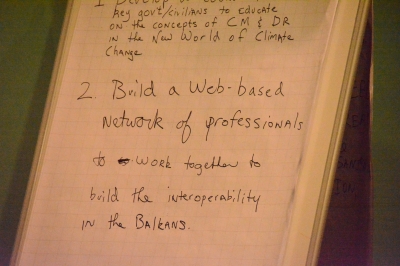 1 Develop
key gov't/civilians to educate
on the concepts of CM & DR
in the New World of Climate
Change
2. Build a Web-based
Network of professionals
to work together to
build the interoperability
in the Balkans.